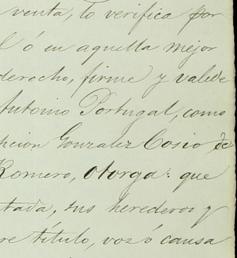 venta, lo verifica por
ó en aquella mejor
derecho, firme y valede
Antonio Portugal, como
pcion Gonzalez Cosio de
Romero, otorga: que
tada, sus herederos y
re titulo, voz ó causa